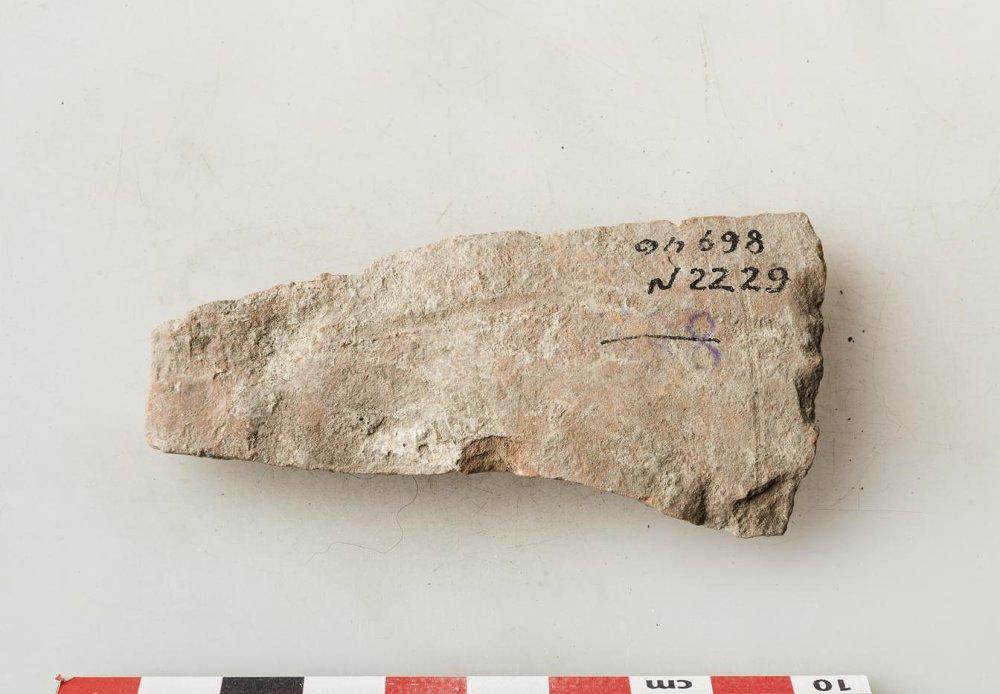 оп 698
N 2229
8
cm 10